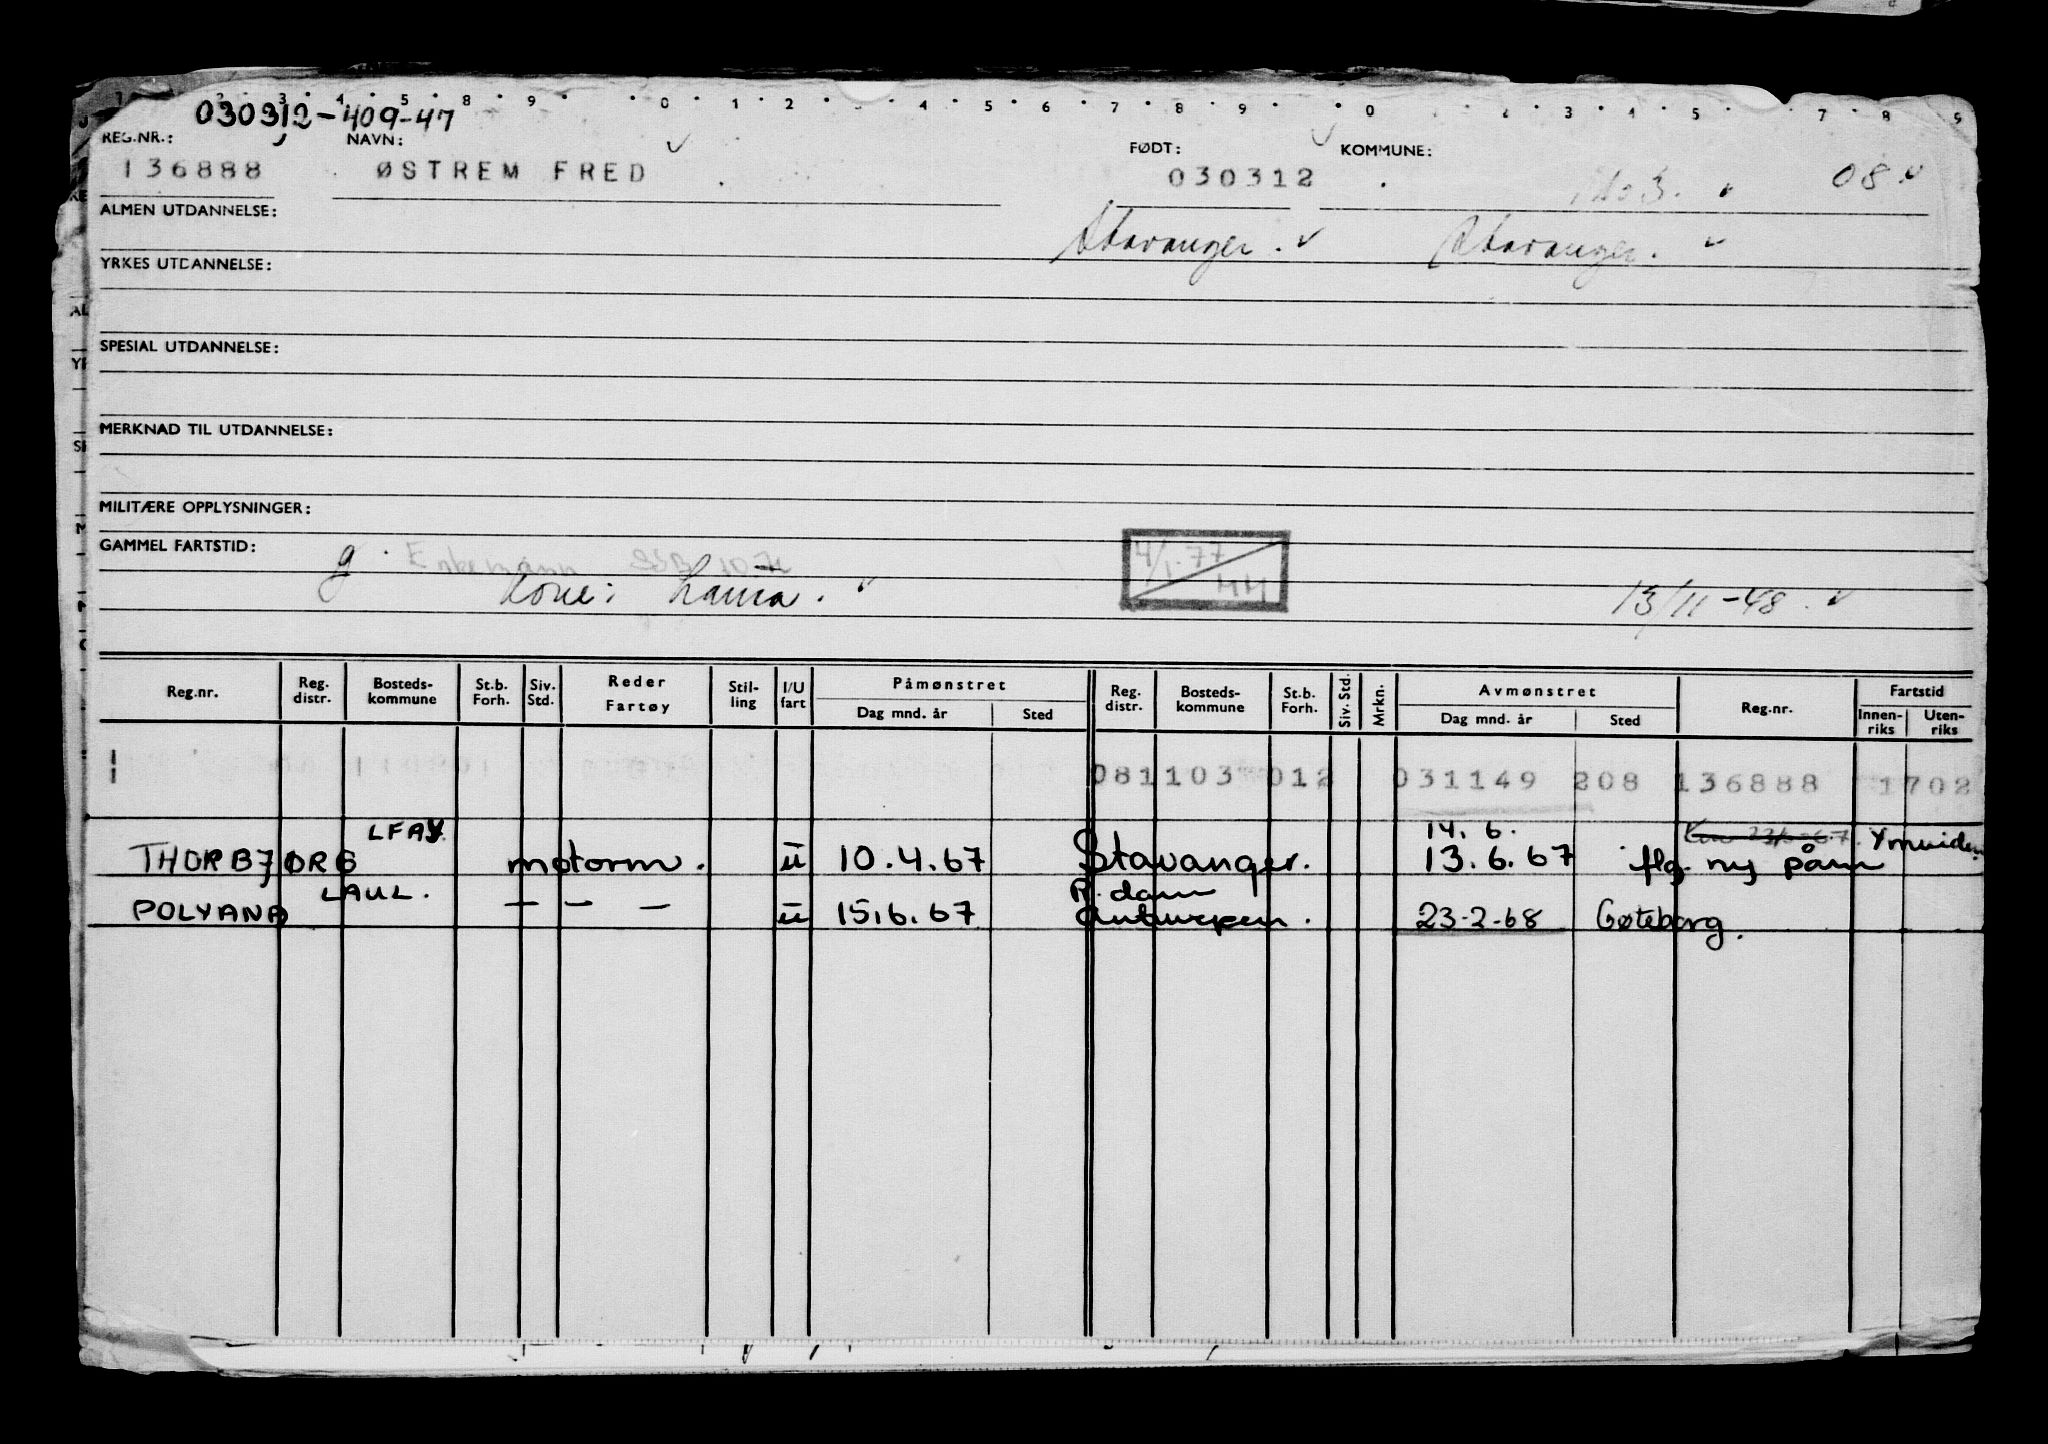 030312-409-47
REG.NR.: NAVN: FØDT: KOMMUNE:
136888 ØSTREM FRED 030312 08
ALMEN UTDANNELSE: Stavanger. Stavanger.
YRKES UTDANNELSE:
SPESIAL UTDANNELSE:
MERKNAD TIL UTDANNELSE:
MILITÆRE OPPLYSNINGER:
GAMMEL FARTSTID: g. Enkemann
4/1.77
Kone: 13/11-48.
Reg.nr. Reg. distr. Bosteds-kommune St.b. Forh. Siv. Std. Reder Fartøy Stil-ling I/U fart Påmønstret Dag mnd. år Sted Reg. distr. Bosteds-kommune St.b. Forh. Siv. Std. Mrkn. Avmønstret Dag mnd. år Sted Reg.nr. Fartstid Innen-riks Uten-riks
081103 012 031149 208 136888 1702
LFAY 14.6. Ymuiden
THORBJØRG motorm. u 10.4.67 Stavanger. 13.6.67 flg. ny påm
LAUL. R.dam
POLYANA — — — u 15.6.67 Antwerpen. 23-2-68 Gøteborg.